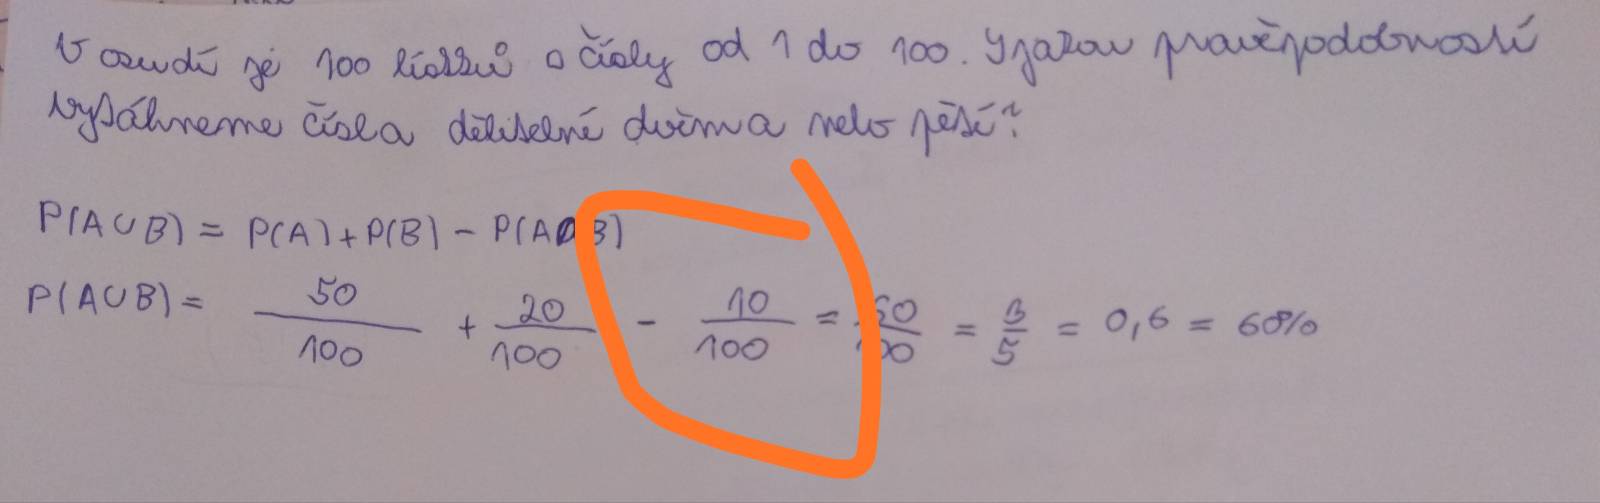 V osudí je 100 lístků s čísly od 1 do 100. S jakou pravěpodobností
vytáhneme čísla dělitelné dvěma nebo pěti?
P(A∪B) = P(A) + P(B) - P(A∩B)
P(A∪B) = 50/100 + 20/100 - 10/100 = 60/100 = 3/5 = 0,6 = 60%